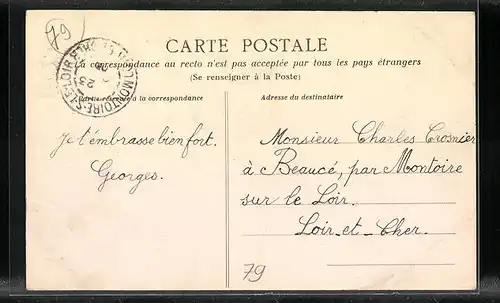 79
CARTE POSTALE
La correspondance au recto n'est pas acceptée par tous les pays étrangers
(Se renseigner à la Poste)
MONTOIRE-S-LE-LOIR
23
Partie réservée à la correspondance
Adresse du destinataire
Je t'embrasse bien fort.
Georges.
Monsieur Charles Crosnier
à Beaucé, par Montoire
sur le Loir.
Loir-et-Cher.
79